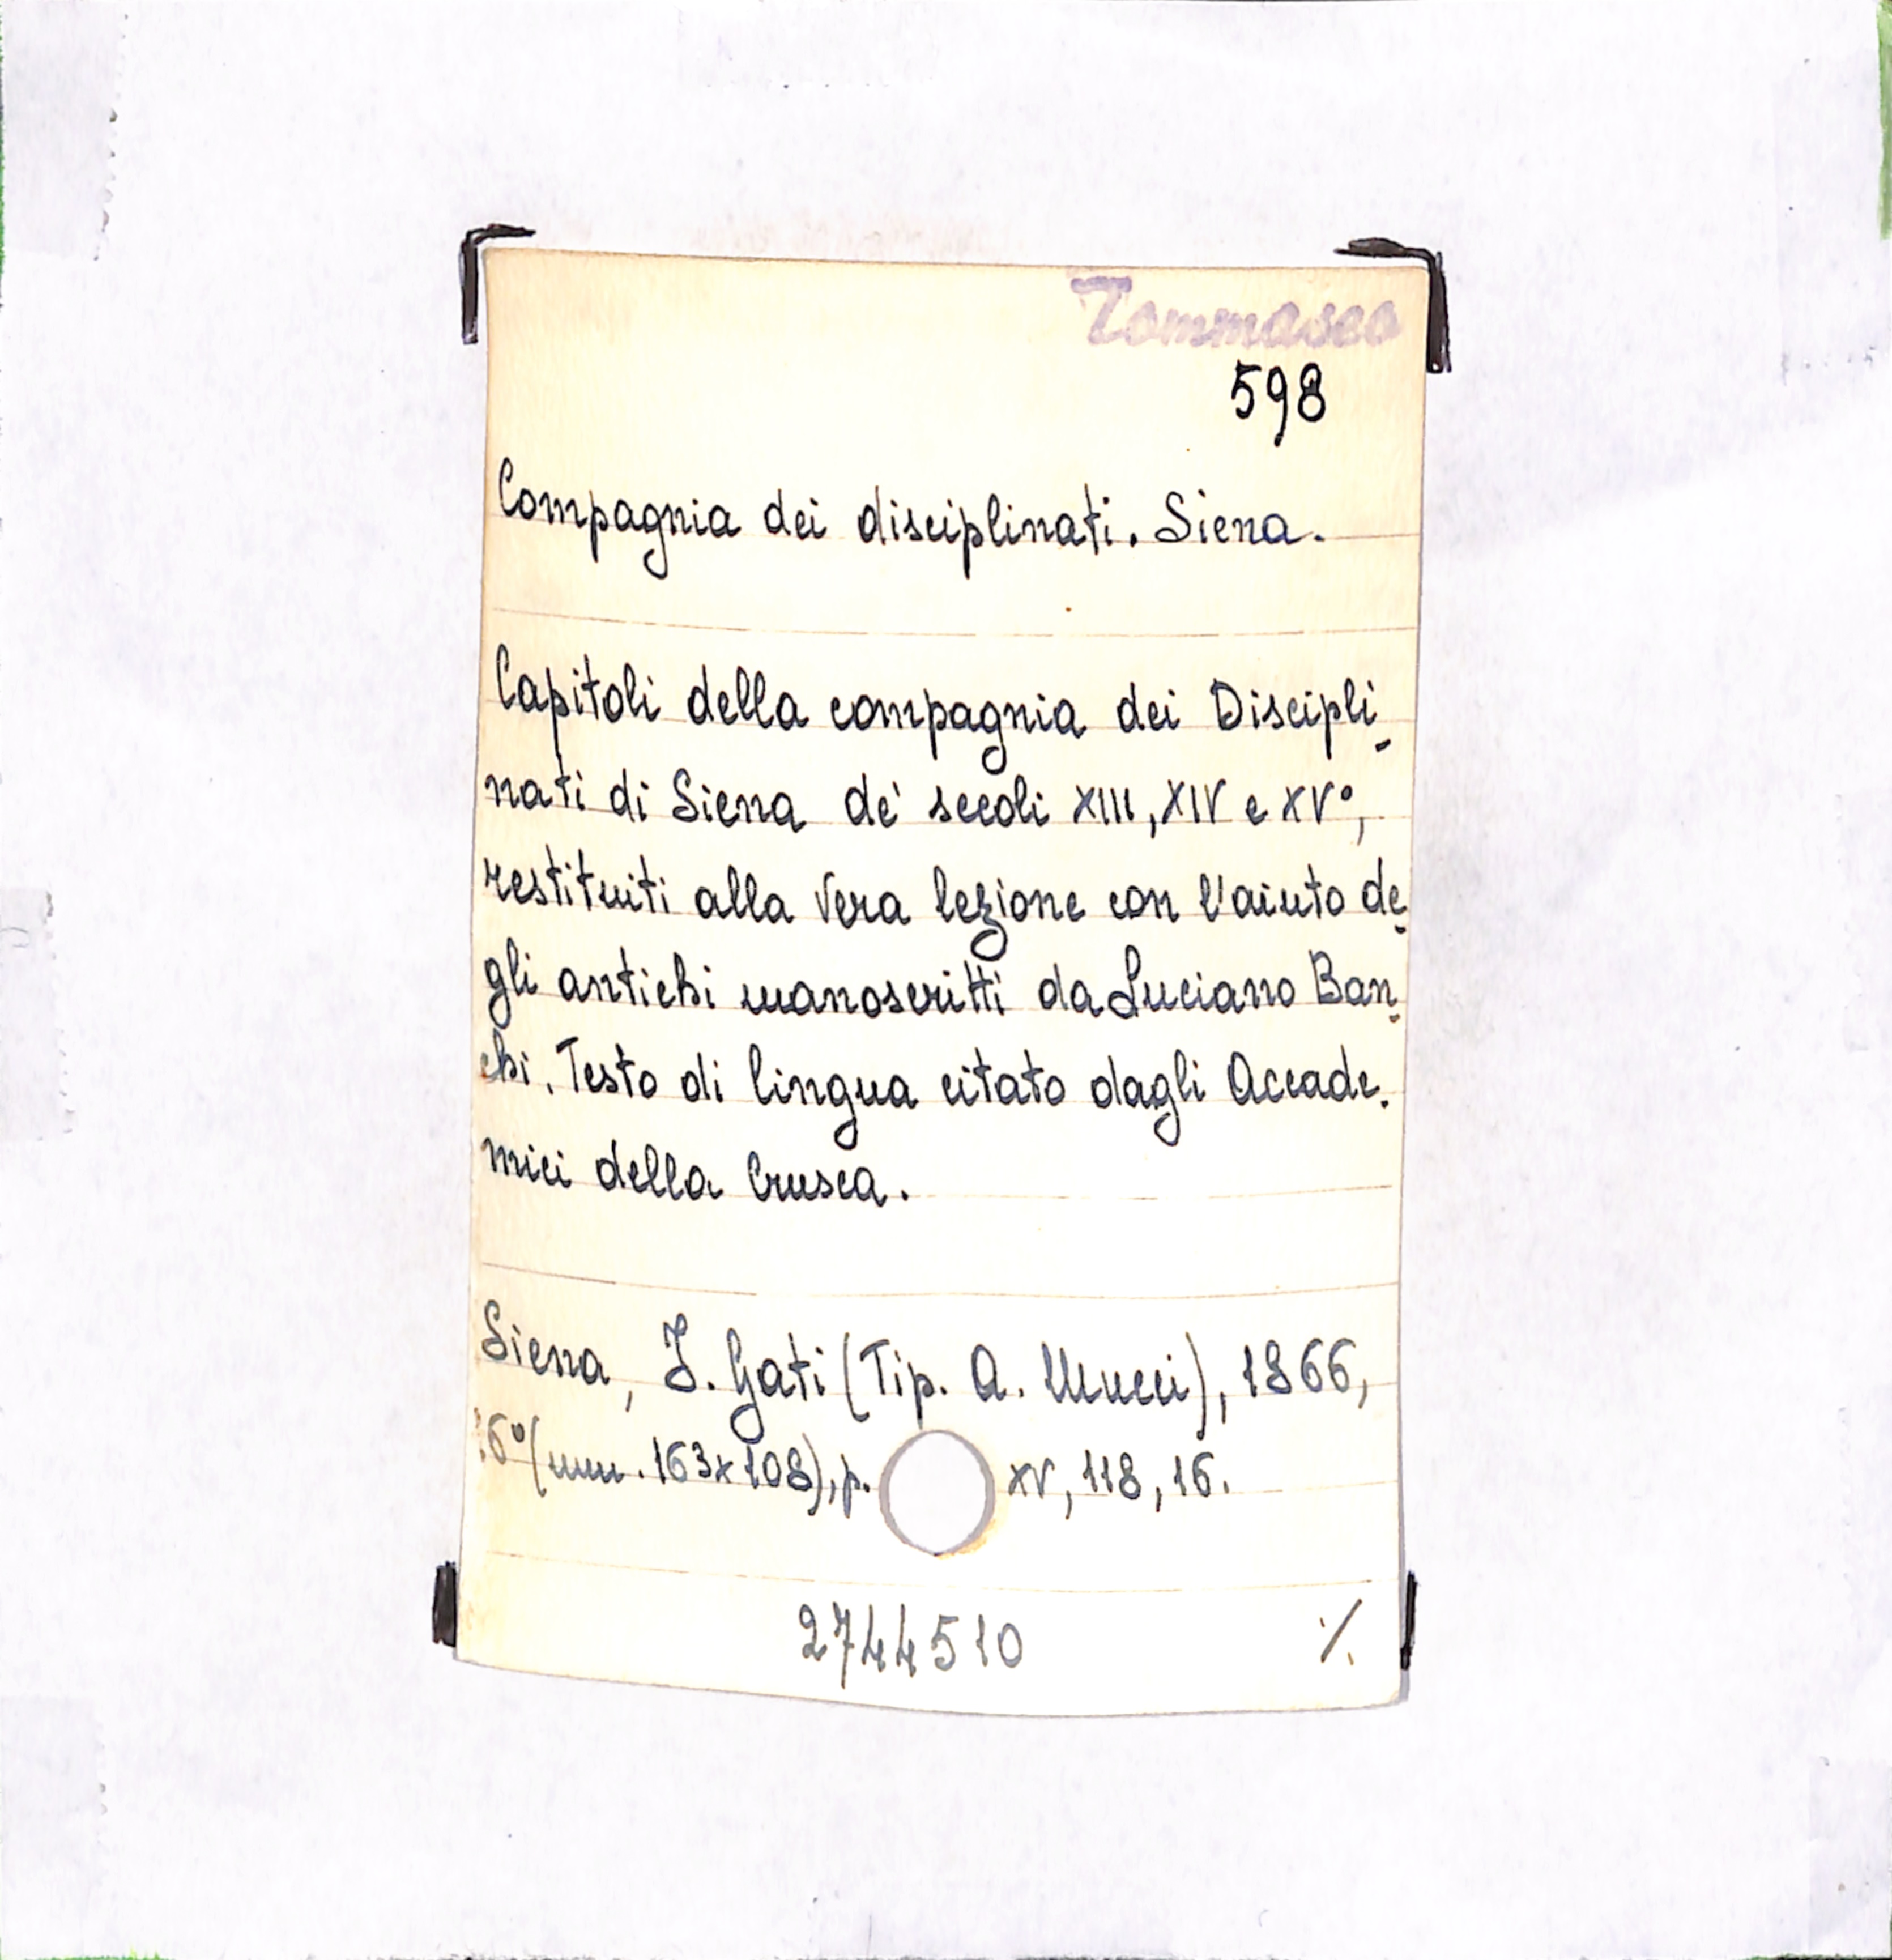 Tommaseo
598
Compagnia dei disciplinati. Siena.
Capitoli della compagnia dei Discipli-
nati di Siena de' secoli XIII, XIV e XV°,
restituiti alla vera lezione con l'aiuto de-
gli antichi manoscritti da Luciano Ban-
chi. Testo di lingua citato dagli Accade-
mici della Crusca.
Siena, I. Gati (Tip. A. Mucci), 1866,
16° (mm. 163x108), p. XV, 118, 16.
2744510 ./.